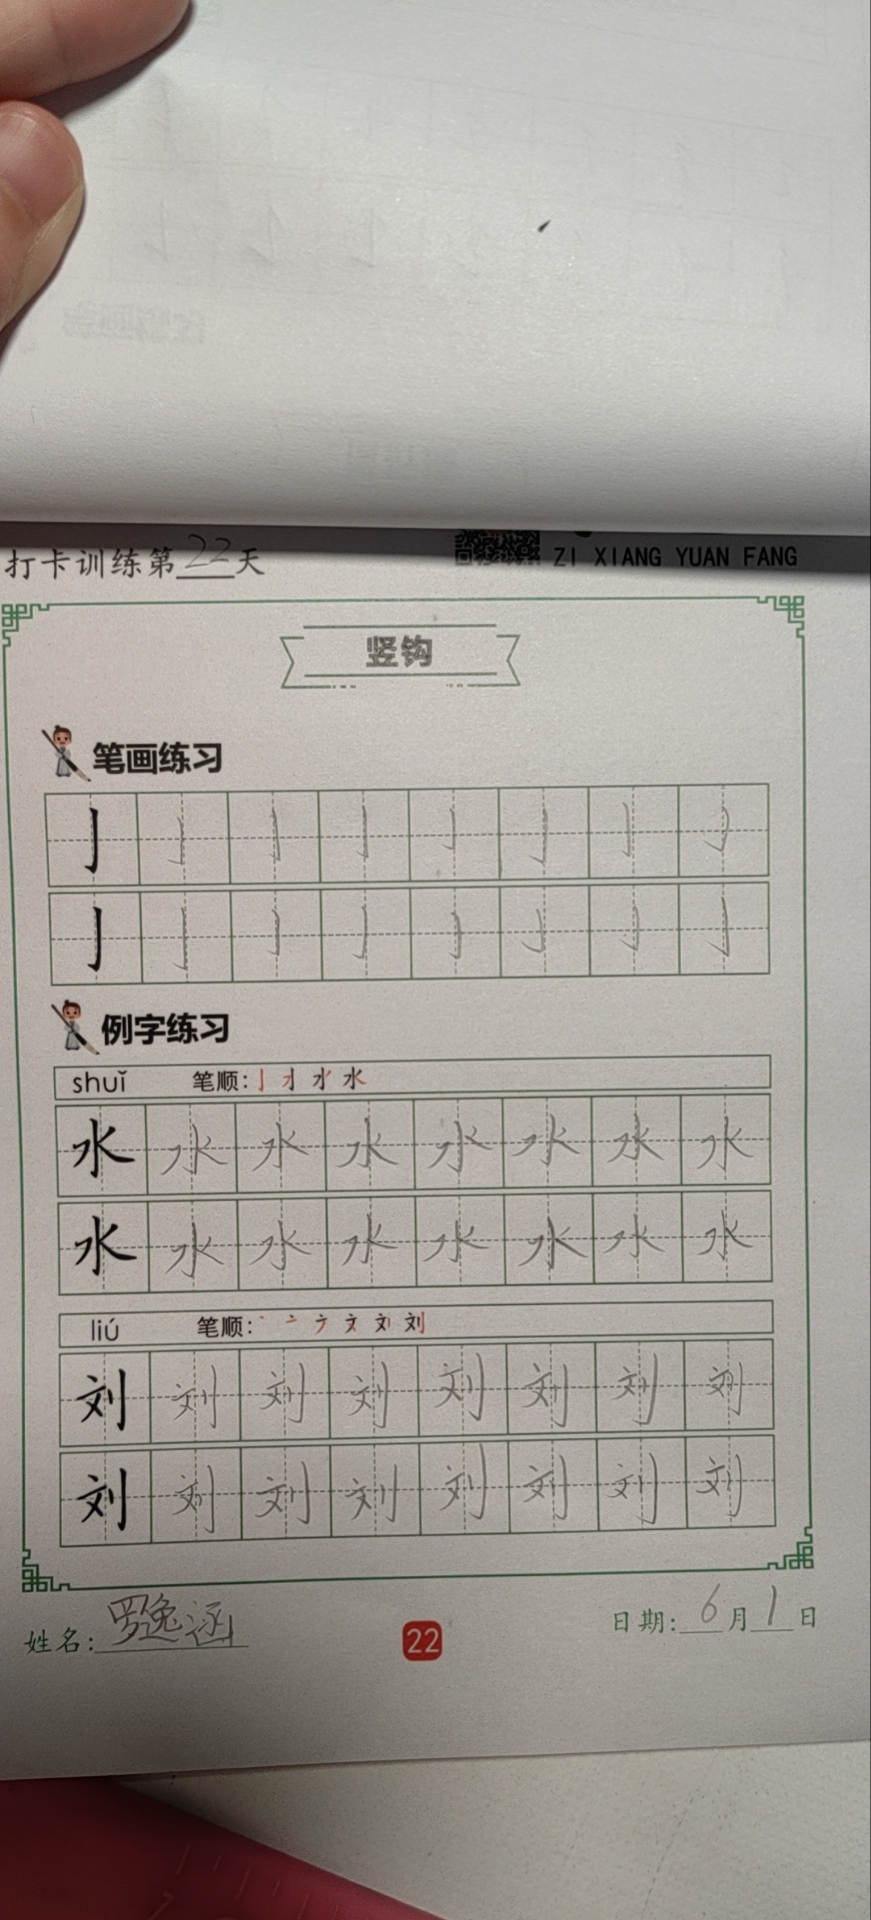 打卡训练第22天
ZI XIANG YUAN FANG
竖钩
笔画练习
亅 亅 亅 亅 亅 亅 亅 亅
亅 亅 亅 亅 亅 亅 亅 亅
例字练习
shuǐ 笔顺:
水 水 水 水 水 水 水 水
水 水 水 水 水 水 水 水
liú 笔顺:
刘 刘 刘 刘 刘 刘 刘 刘
刘 刘 刘 刘 刘 刘 刘 刘
姓名:罗逸涵
22
日期:6月1日